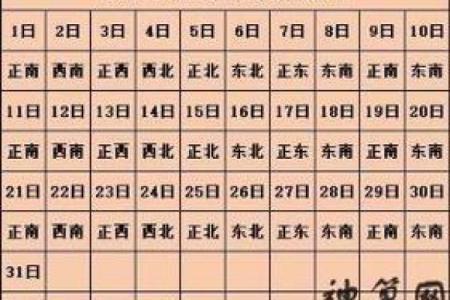 1日 2日 3日 4日 5日 6日 7日 8日 9日 10日
正南 西南 正西 西北 正北 东北 正东 东南 正南 东南
11日 12日 13日 14日 15日 16日 17日 18日 19日 20日
正南 西南 正西 西北 正北 东北 正东 东南 正南 东南
21日 22日 23日 24日 25日 26日 27日 28日 29日 30日
正南 西南 正西 西北 正北 东北 正东 东南 正南 东南
31日
神算网